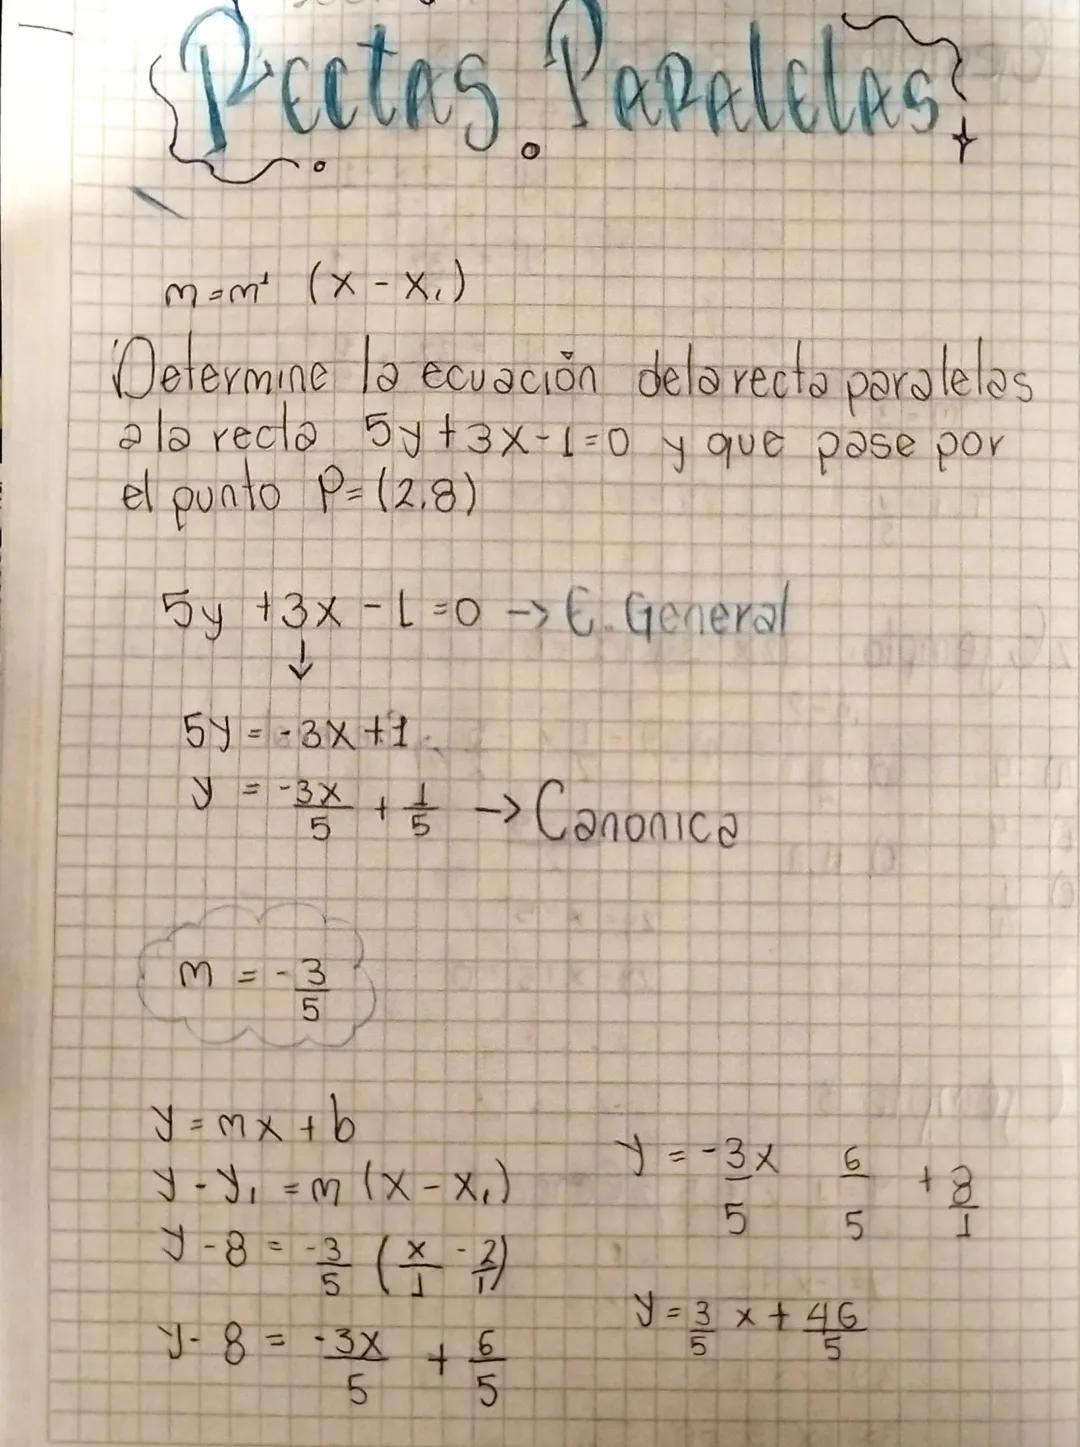 Rectas Paralelas
m=m¹ (x - x₁)
Determine la ecuación de la recta paralelas
a la recta 5y+3x-1=0 y que pase por
el punto P=(2,8)
5y +3x -1=0 → E. General
↓
5y = -3x+1
y = -3x/5 + 1/5 → Canonica
m = -3/5
y = mx + b
y - y₁ = m (x - x₁)
y - 8 = -3/5 (x/1 - 2/1)
y - 8 = -3x/5 + 6/5
y = -3x/5 6/5 + 8/1
y = 3/5 x + 46/5